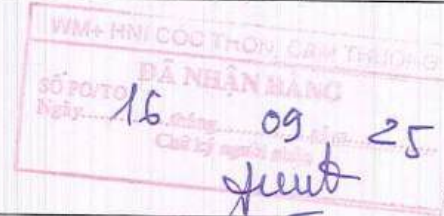 WM+ HNI CỐC THÔN, CẨM THƯỢNG
ĐÃ NHẬN HÀNG
SỐ PO/TO
Ngày 16 tháng 09 năm 25
Chữ ký người nhận